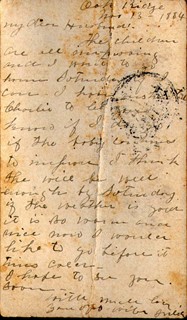 Oak Ridge
Nov 13 - 1884
My dear Husband
The children
are all improving
and I want to
home Saturday
can I
Charlie to let
know if I
if the baby continues
to improve I think
she will be well
enough by Saturday
if the weather is good
it is so warm and
nice now I would
like to go before it
turns colder
I hope to see you
soon
with much love